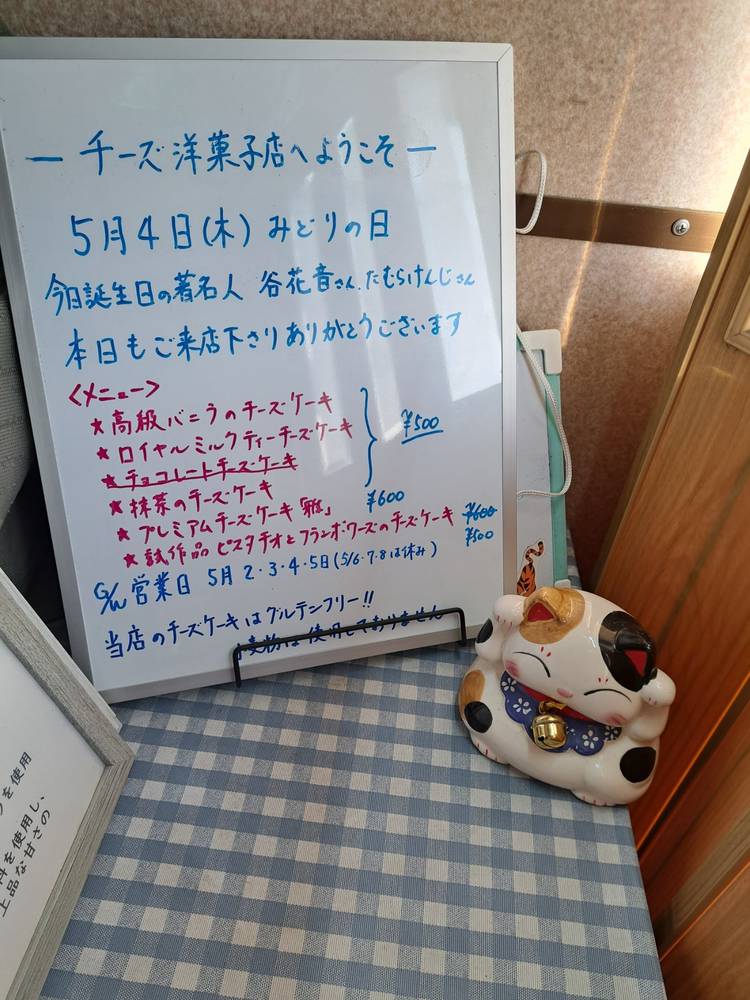 ― チーズ洋菓子店へようこそ ―
5月4日(木) みどりの日
今日誕生日の著名人 谷花音さん、たむらけんじさん
本日もご来店下さりありがとうございます
<メニュー>
★高級バニラのチーズケーキ
★ロイヤルミルクティーチーズケーキ
¥500
★チョコレートチーズケーキ
★抹茶のチーズケーキ
★プレミアムチーズケーキ「雅」 ¥600
★試作品 ピスタチオとフランボワーズのチーズケーキ ¥600
¥500
G/W 営業日 5月 2・3・4・5日(5/6・7・8は休み)
当店のチーズケーキはグルテンフリー!!
麦粉は使用しておりません
を使用
料を使用し、
上品な甘さの